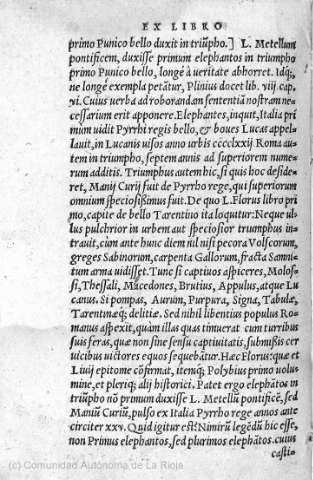 EX LIBRO
primo Punico bello duxit in triũpho.] L. Metellum
pontificem, duxisse primum elephantos in triumpho
primo Punico bello, longè à ueritate abhorret. Idq;
ne longè exempla petãtur, Plinius docet lib. viij cap.
vi. Cuius uerba ad roborandam sententiã nostram ne-
cessarium erit apponere. Elephantes, inquit, Italia pri
mùm uidit Pyrrhi regis bello, & boues Lucas appel-
lauit, in Lucanis uisos anno urbis cccclxxij Roma au-
tem in triumpho, septem annis ad superiorem nume-
rum additis. Triumphus autem hic, si quis hoc deside-
ret, Manij Curij fuit de Pyrrho rege, qui superiorum
omnium speciosissimus fuit. De quo L. Florus libro pri
mo, capite de bello Tarentino ita loquitur: Neque ul-
lus pulchrior in urbem aut speciosior triumphus in-
trauit, cum ante hunc diem nil nisi pecora Volscorum,
greges Sabinorum, carpenta Gallorum, fracta Samni-
tum arma uidisset. Tunc si captiuos aspiceres, Molos-
si, Thessali, Macedones, Brutius, Appulus, atque Lu
canus. Si pompas, Aurum, Purpura, Signa, Tabulæ,
Tarentinæq; delitiæ. Sed nihil libentius populus Ro-
manus aspexit, quàm illas quas timuerat cum turribus
suis feras, quæ non sine sensu captiuitatis, submißis cer
uicibus uictores equos sequebãtur. Hæc Florus: quæ et
Liuij epitome cõfirmat, itemq; Polybius primo uolu-
mine, et pleriq; alij historici. Patet ergo elephãtos in
triumpho nõ primum duxisse L. Metellũ pontificẽ, sed
Maniũ Curiũ, pulso ex Italia Pyrrho rege annos ante
circiter xxv. Quid igitur est? Nimirũ legẽdũ hic esse,
non Primus elephantos, sed plurimos elephãtos. cuius
casti-
(c) Comunidad Autónoma de La Rioja